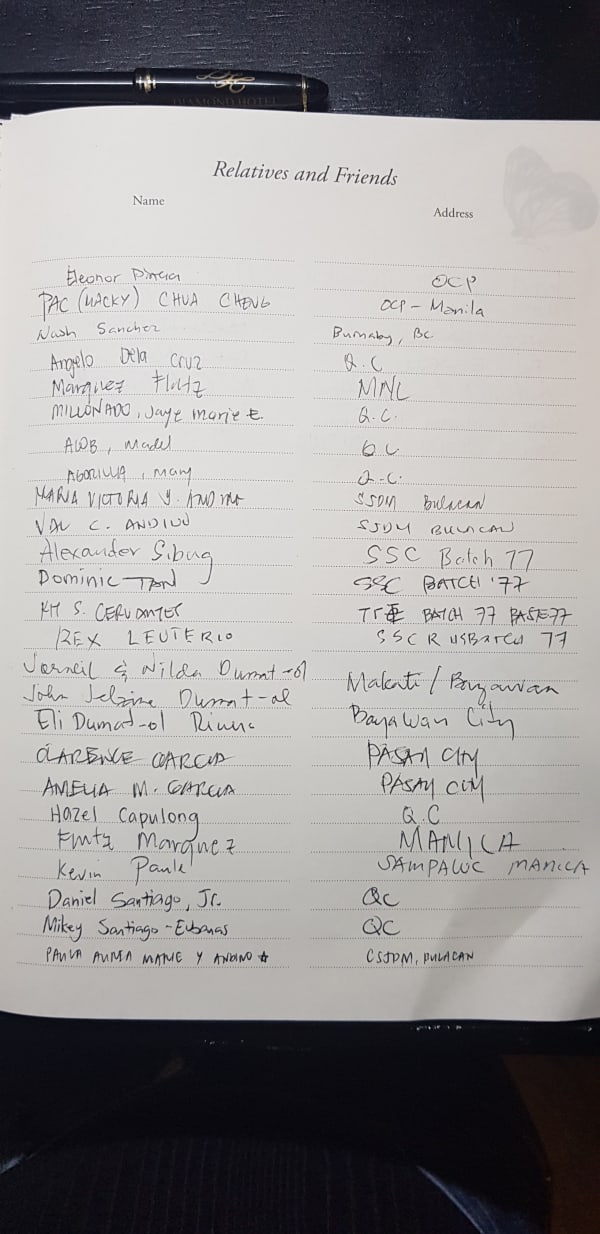 DIAMOND HOTEL
Relatives and Friends
Name Address
Eleonor OCP
PAC (MACKY) CHUA CHENG OCP - Manila
Nash Sanchez Burnaby, BC
Angelo Dela Cruz Q.C
Marquez MNL
MILLONADO, Jaye Marie E. Q.C.
Madel Q C
AGORILLA, Mary Q.C.
MARIA VICTORIA Y. ANDINO SSDM Bulacan
VAL C. ANDINO SJDM BULACAN
Alexander Sibug SSC Batch 77
Dominic TAN SSC BATCH '77
S. CERVANTES BATCH 77
REX LEUTERIO 77
& Nilda Dumat-ol Makati / Bayawan
John Dumat-ol
Eli Dumat-ol Bayawan City
CLARENCE GARCIA PASAY CITY
AMELIA M. GARCIA PASAY CITY
Hazel Capulong Q.C
Marquez MANILA
Kevin SAMPALOC MANILA
Daniel Santiago, Jr. QC
Mikey Santiago-Eubanas QC
MARIE Y ANDINO CSJDM, BULACAN